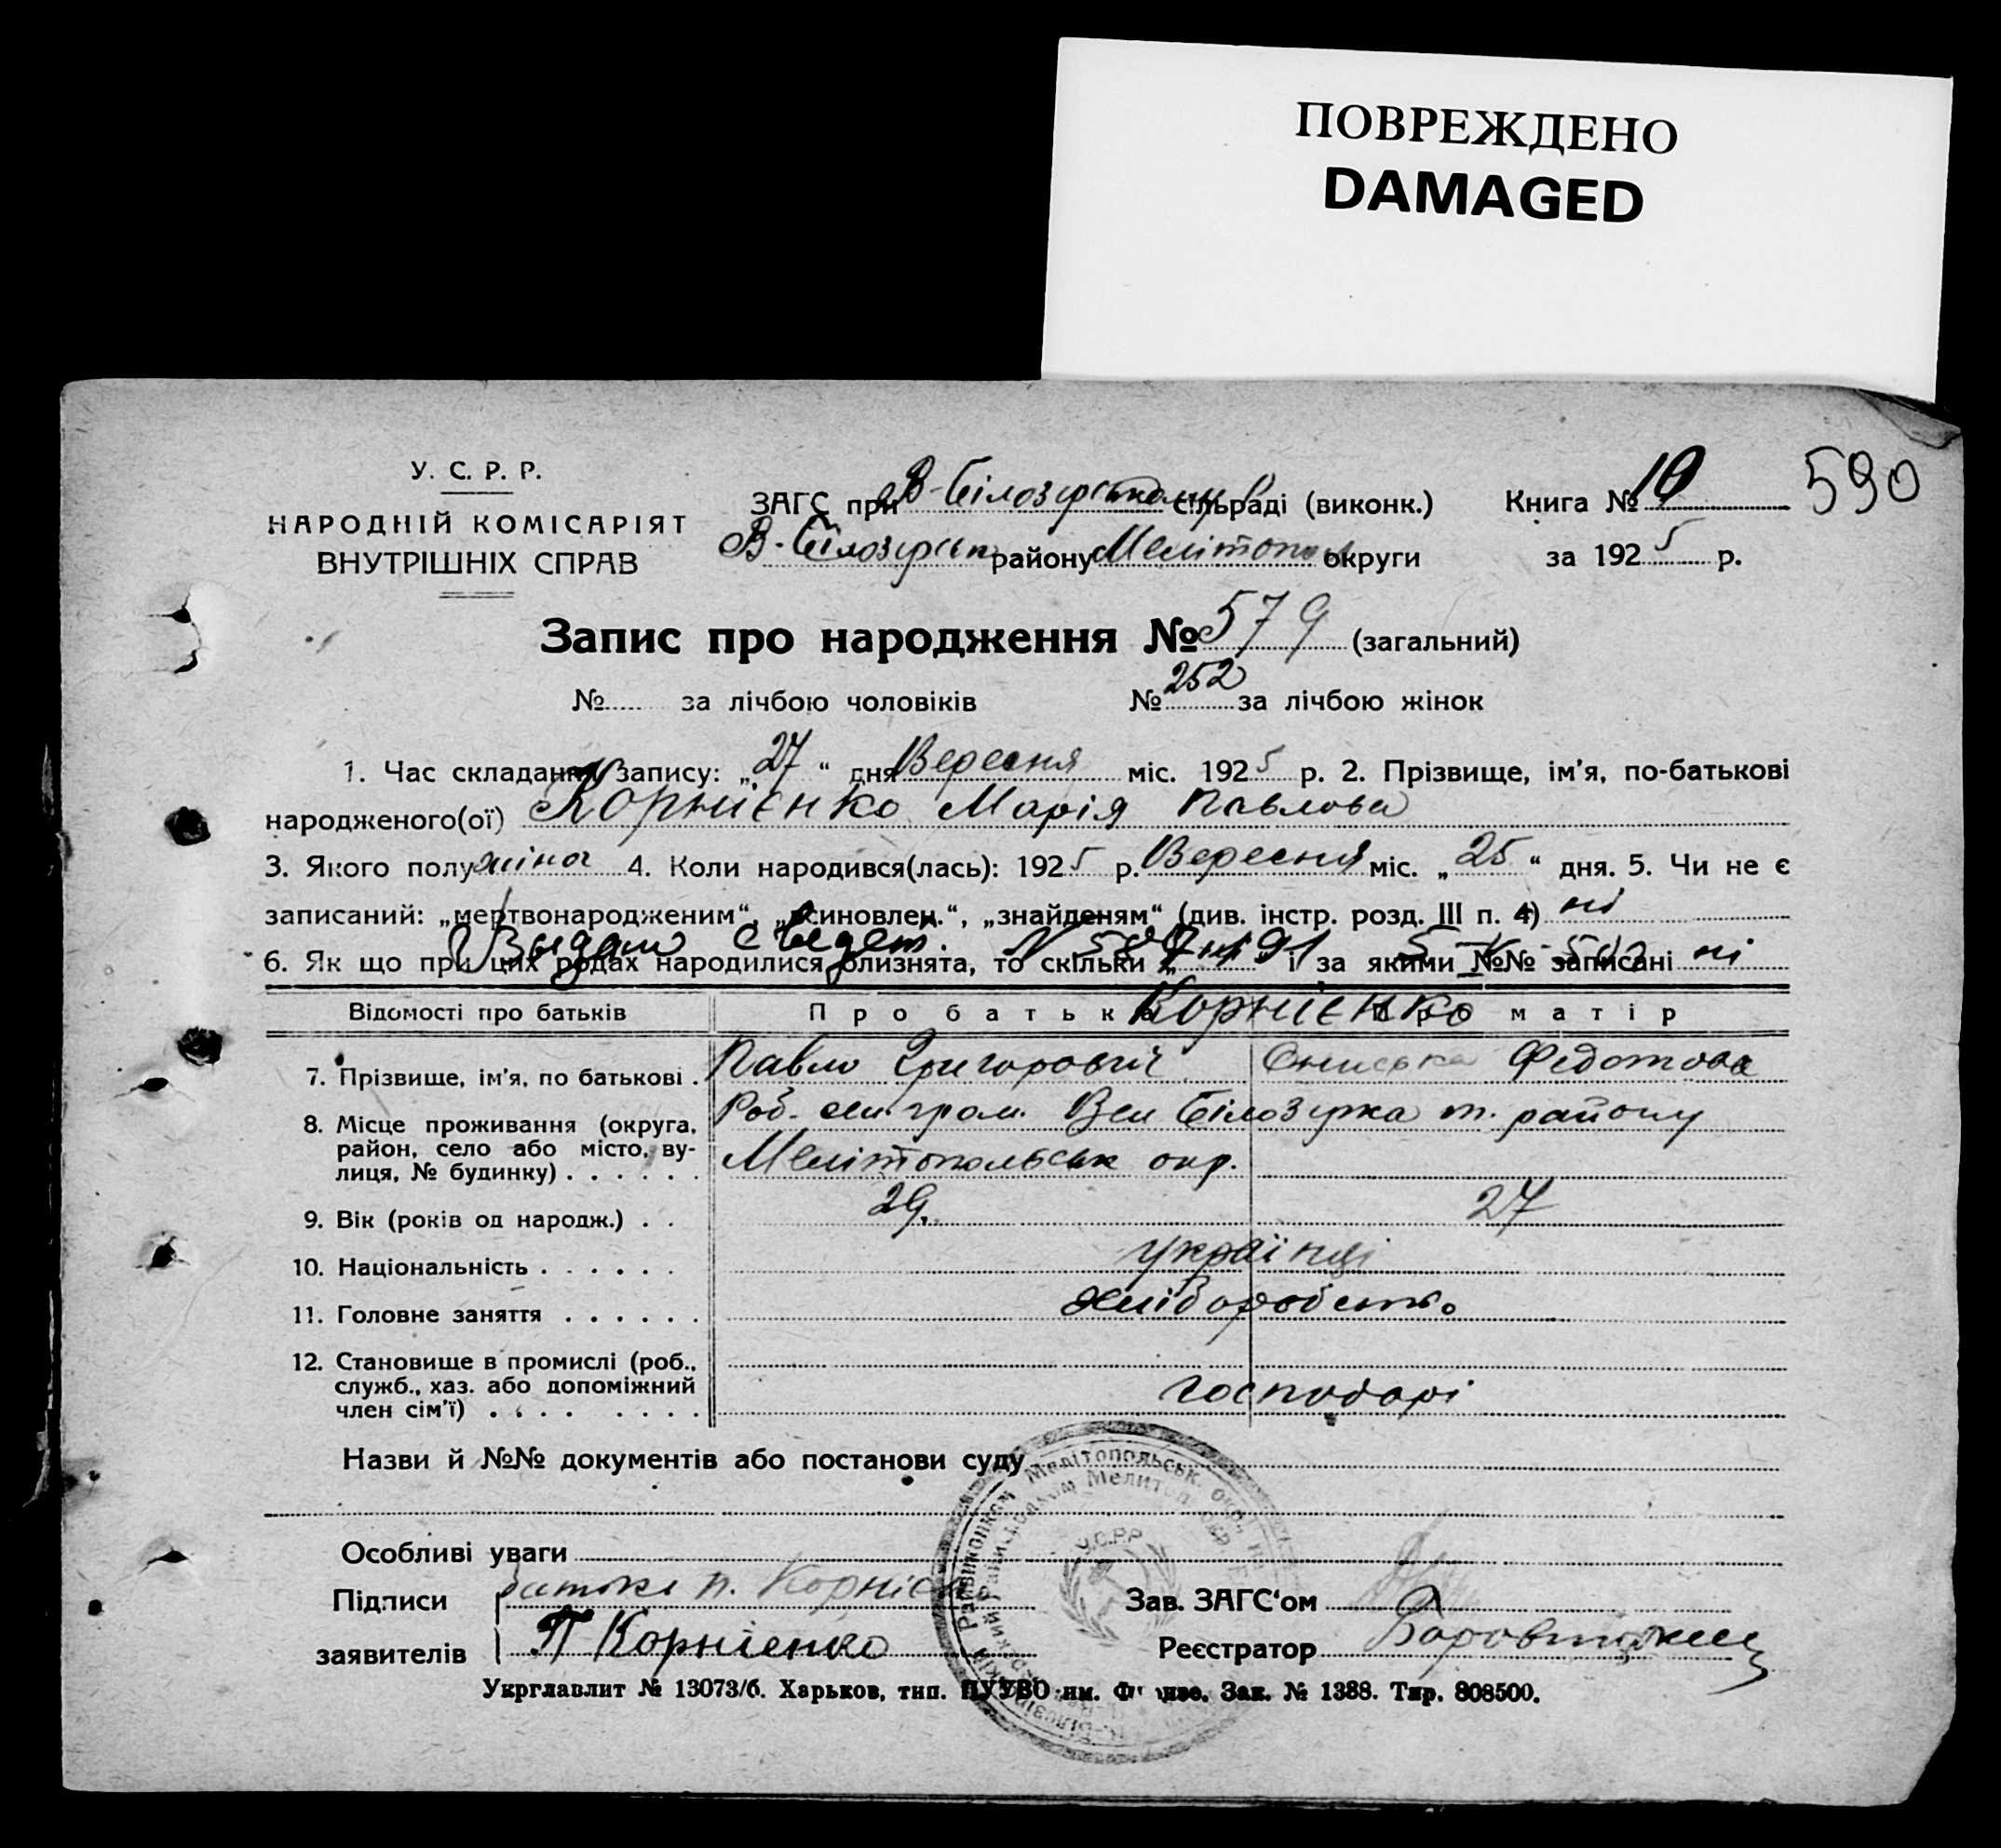 ПОВРЕЖДЕНО
DAMAGED
У. С. Р. Р.
НАРОДНІЙ КОМІСАРІЯТ
ВНУТРІШНІХ СПРАВ
ЗАГС при В-Білозірському сільраді (виконк.)
В-Білозірськ району Мелітопол округи
Книга № 10
590
за 1925 р.
Запис про народження № 579 (загальний)
№ за лічбою чоловіків № 252 за лічбою жінок
1. Час складання запису: „27“ дня Вересня міс. 1925 р. 2. Прізвище, ім'я, по-батькові
народженого(ої) Корнієнко Марія Павлова
3. Якого полу жіноч 4. Коли народився(лась): 1925 р. Вересня міс. „25“ дня. 5. Чи не є
записаний: „мертвонародженим“, „усиновлен.“, „знайденям“ (див. інстр. розд. III п. 4) ні
Выдан свидет. №
6. Як що при цих родах народилися близнята, то скільки „ і за якими №№ записані ні
Відомості про батьків Про батька Про матір
Корнієнко
7. Прізвище, ім'я, по батькові . Павло Григорович Федотова
8. Місце проживання (округа, район, село або місто, вулиця, № будинку) . . . . . . Вел Білозірка т. району
Мелітопольськ окр.
9. Вік (років од народж.) . . 29. 27
10. Національність . . . . . . українці
11. Головне заняття . . . . . . хліборобств.
12. Становище в промислі (роб., служб., хаз. або допоміжний член сім'ї) . . . . . . . . господарі
Назви й №№ документів або постанови суду
Особливі уваги
Підписи заявителів батько п. Корнієн
П Корніенко
Зав. ЗАГС'ом
Реєстратор
Райвиконком Мелітопольськ. окр.
У.С.Р.Р.
Укрглавлит № 13073/б. Харьков, тип. ПУУВО им. Фрунзе. Зак. № 1388. Тир. 808500.